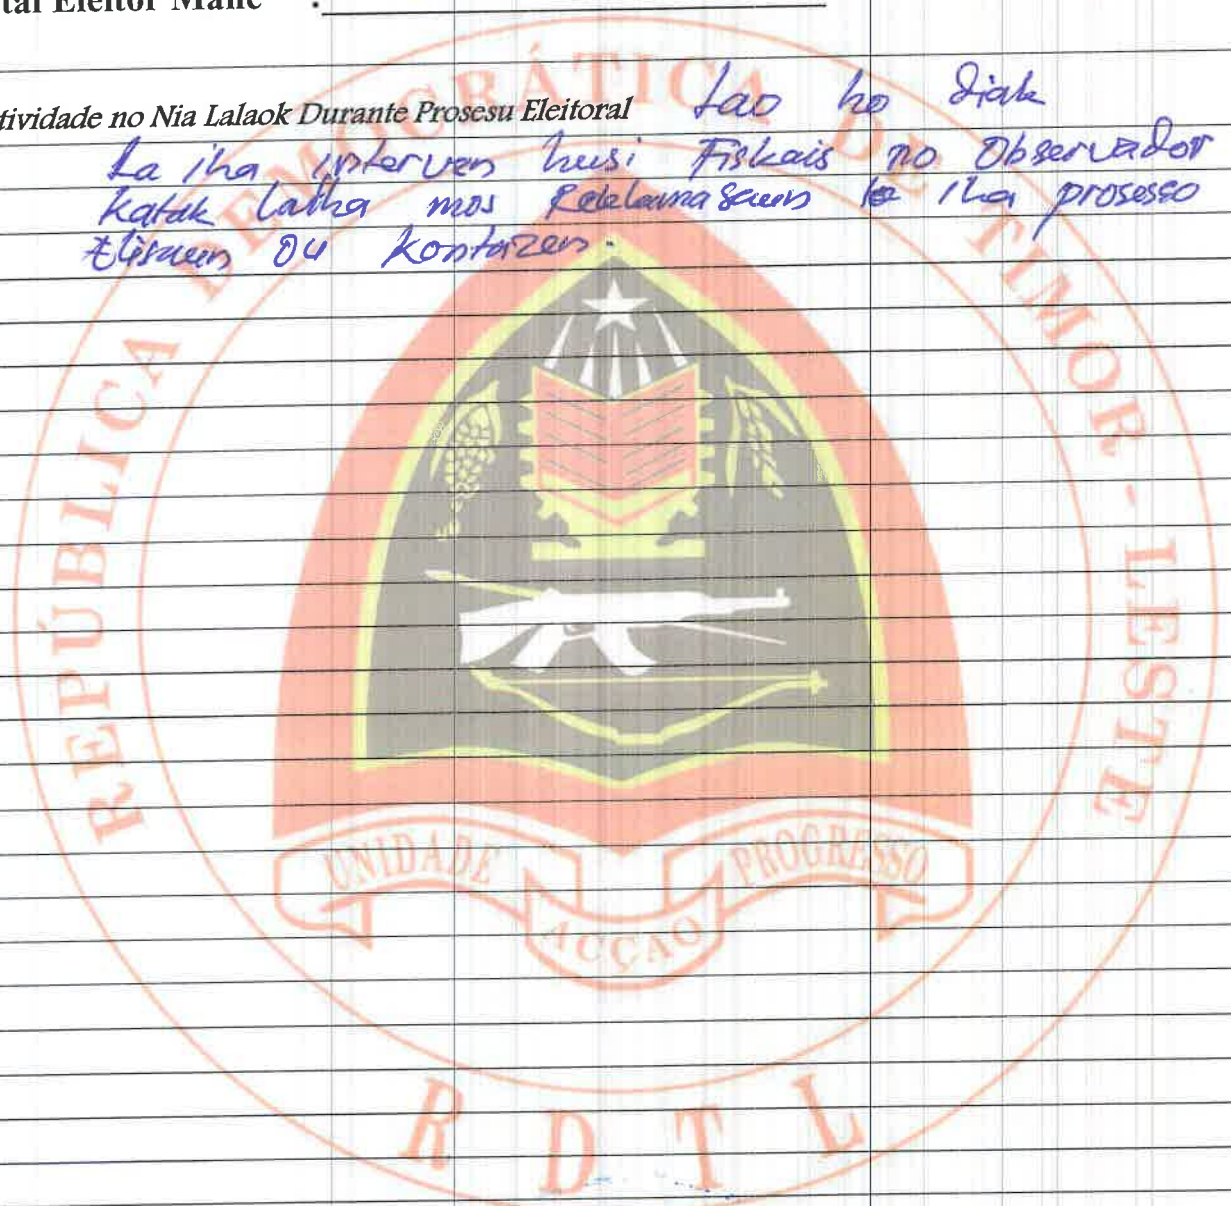 tal Eleitor Mane :
tividade no Nia Lalaok Durante Prosesu Eleitoral Lao ho diak
La iha interven husi Fiskais no Observador
Katak laiha mos Reklamasaun iha prosesso
Elisaun ou Kontazen.
REPÚBLICA DEMOCRÁTICA DE TIMOR-LESTE
UNIDADE
ACÇÃO
PROGRESSO
RDTL